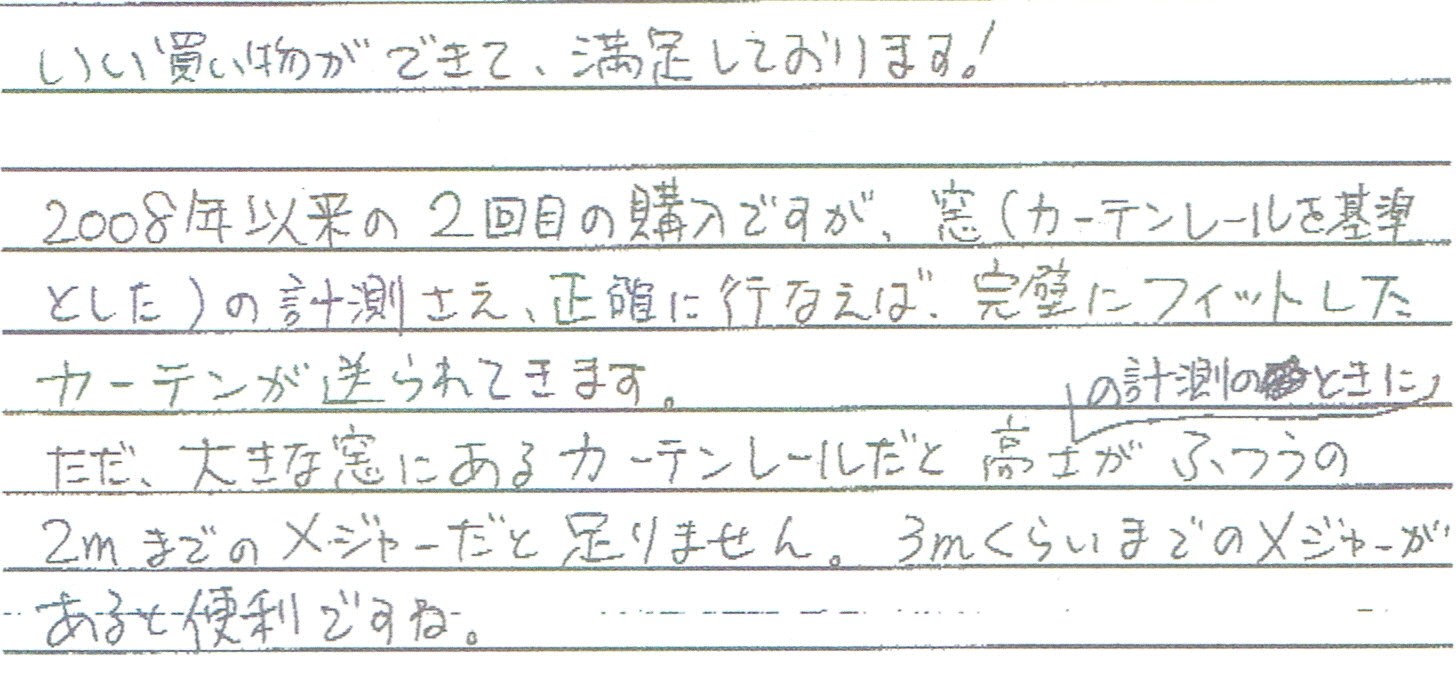 いい買い物ができて、満足しております!
2008年以来の2回目の購入ですが、窓(カーテンレールを基準
とした)の計測さえ、正確に行なえば、完璧にフィットした
カーテンが送られてきます。
の計測のときに
ただ、大きな窓にあるカーテンレールだと高さがふつうの
2mまでのメジャーだと足りません。3mくらいまでのメジャーが
あると便利ですね。